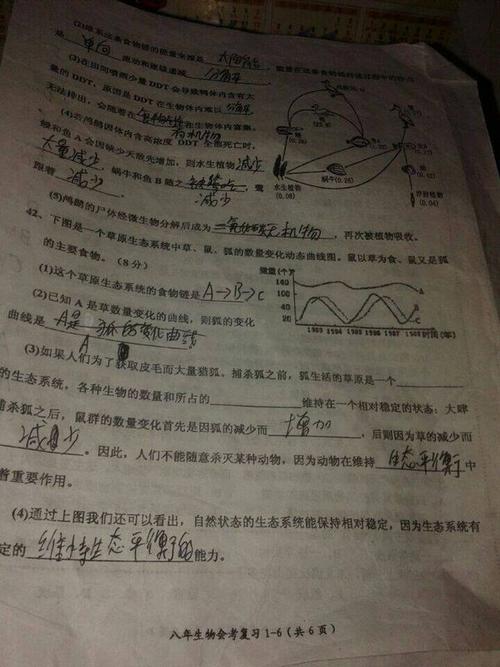 (2)维系这条食物链的能量来源是 太阳能，能量在这条食物链的传递过程中的特点
是 单向 流动和逐级递减
(3)在田间喷洒少量DDT会导致鹈鹕体内含有大
量的DDT，原因是DDT在生物体内难以 分解
无法排出，会随着 食物链 在生物体内富集。
有机物
(4)若鹈鹕因体内含高浓度DDT全部死亡时，
鳗和鱼A会因缺少天敌先增加，则水生植物 减少
大量减少，蜗牛和鱼B随之
减少
跟着 减少。
(5)鹈鹕的尸体经微生物分解后成为 二氧化碳 无机物，再次被植物吸收。
42、下图是一个草原生态系统中草、鼠、狐的数量变化动态曲线图。鼠以草为食、鼠又是狐
的主要食物。（8分）
(1)这个草原生态系统的食物链是 A→B→C
(2)已知A是草数量变化的曲线，则狐的变化
曲线是 A是 狐的变化曲线
A
(3)如果人们为了获取皮毛而大量猎狐、捕杀狐之前，狐生活的草原是一个
的生态系统，各种生物的数量和所占的 维持在一个相对稳定的状态；大肆
捕杀狐之后，鼠群的数量变化首先是因狐的减少而 增加，后则因为草的减少而
减少。因此，人们不能随意杀灭某种动物，因为动物在维持 生态平衡 中
着重要作用。
(4)通过上图我们还可以看出，自然状态的生态系统能保持相对稳定，因为生态系统有
定的 维持生态平衡的 能力。
八年生物会考复习1-6（共6页）
水生植物
(0.08)
蜗牛(0.26)
浮游植物
(0.04)
数量(个)
140
100
60
40
20
A
B
C
1983 1994 1995 1996 1997 1998 时间(年)